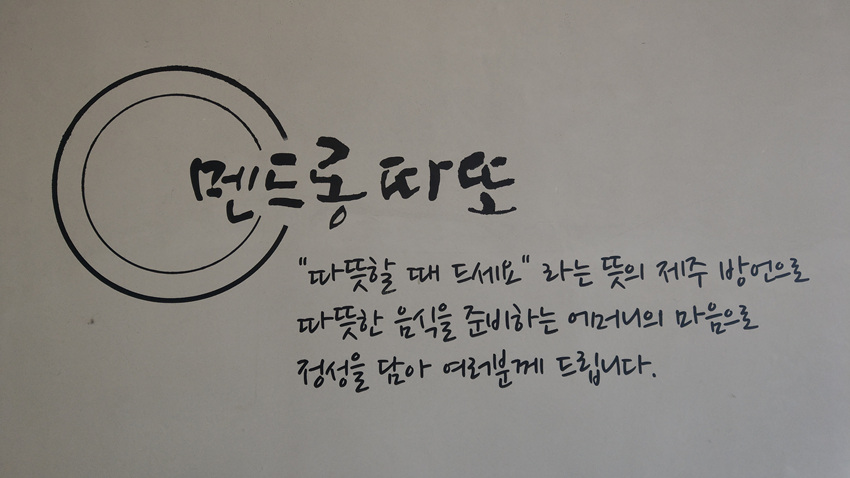 멘드롱 따또
"따뜻할 때 드세요" 라는 뜻의 제주 방언으로
따뜻한 음식을 준비하는 어머니의 마음으로
정성을 담아 여러분께 드립니다.